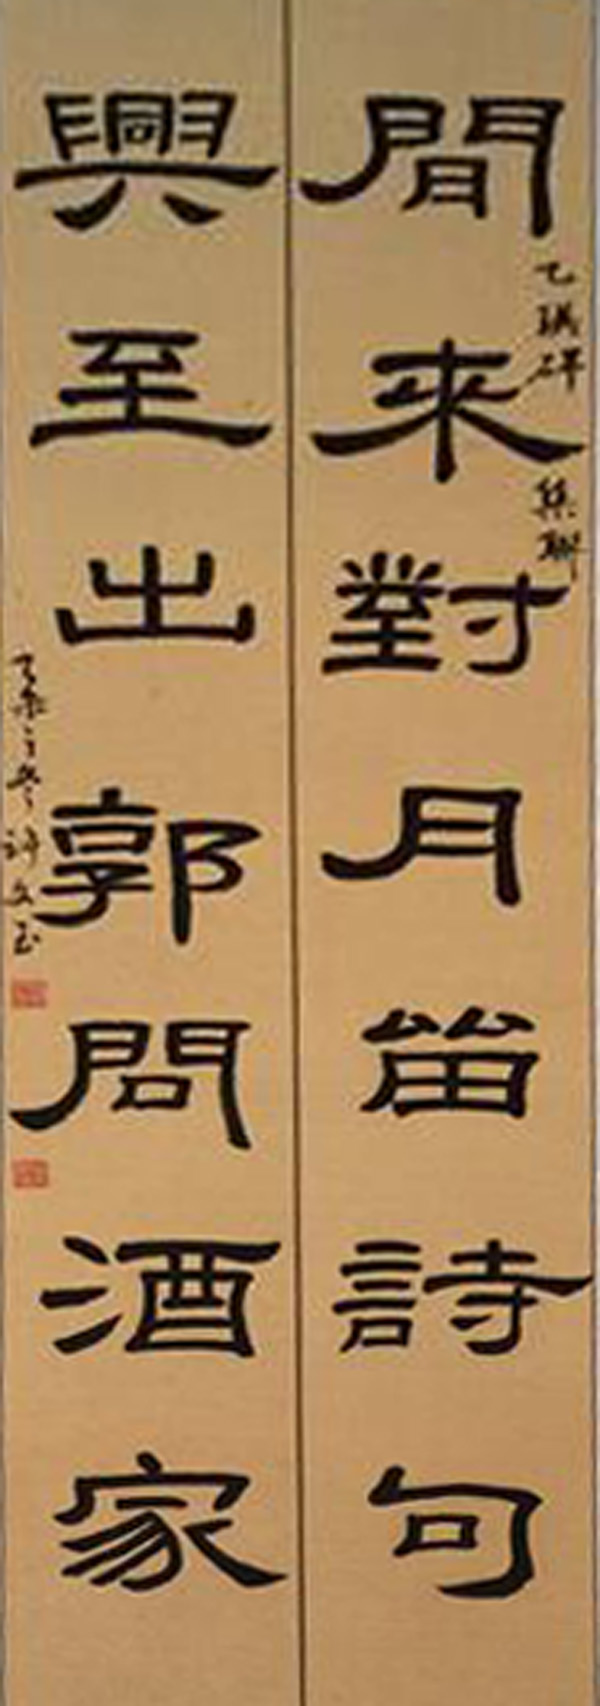 閒來對月留詩句
乙瑛碑
集聯
興至出郭問酒家
之冬
文玉